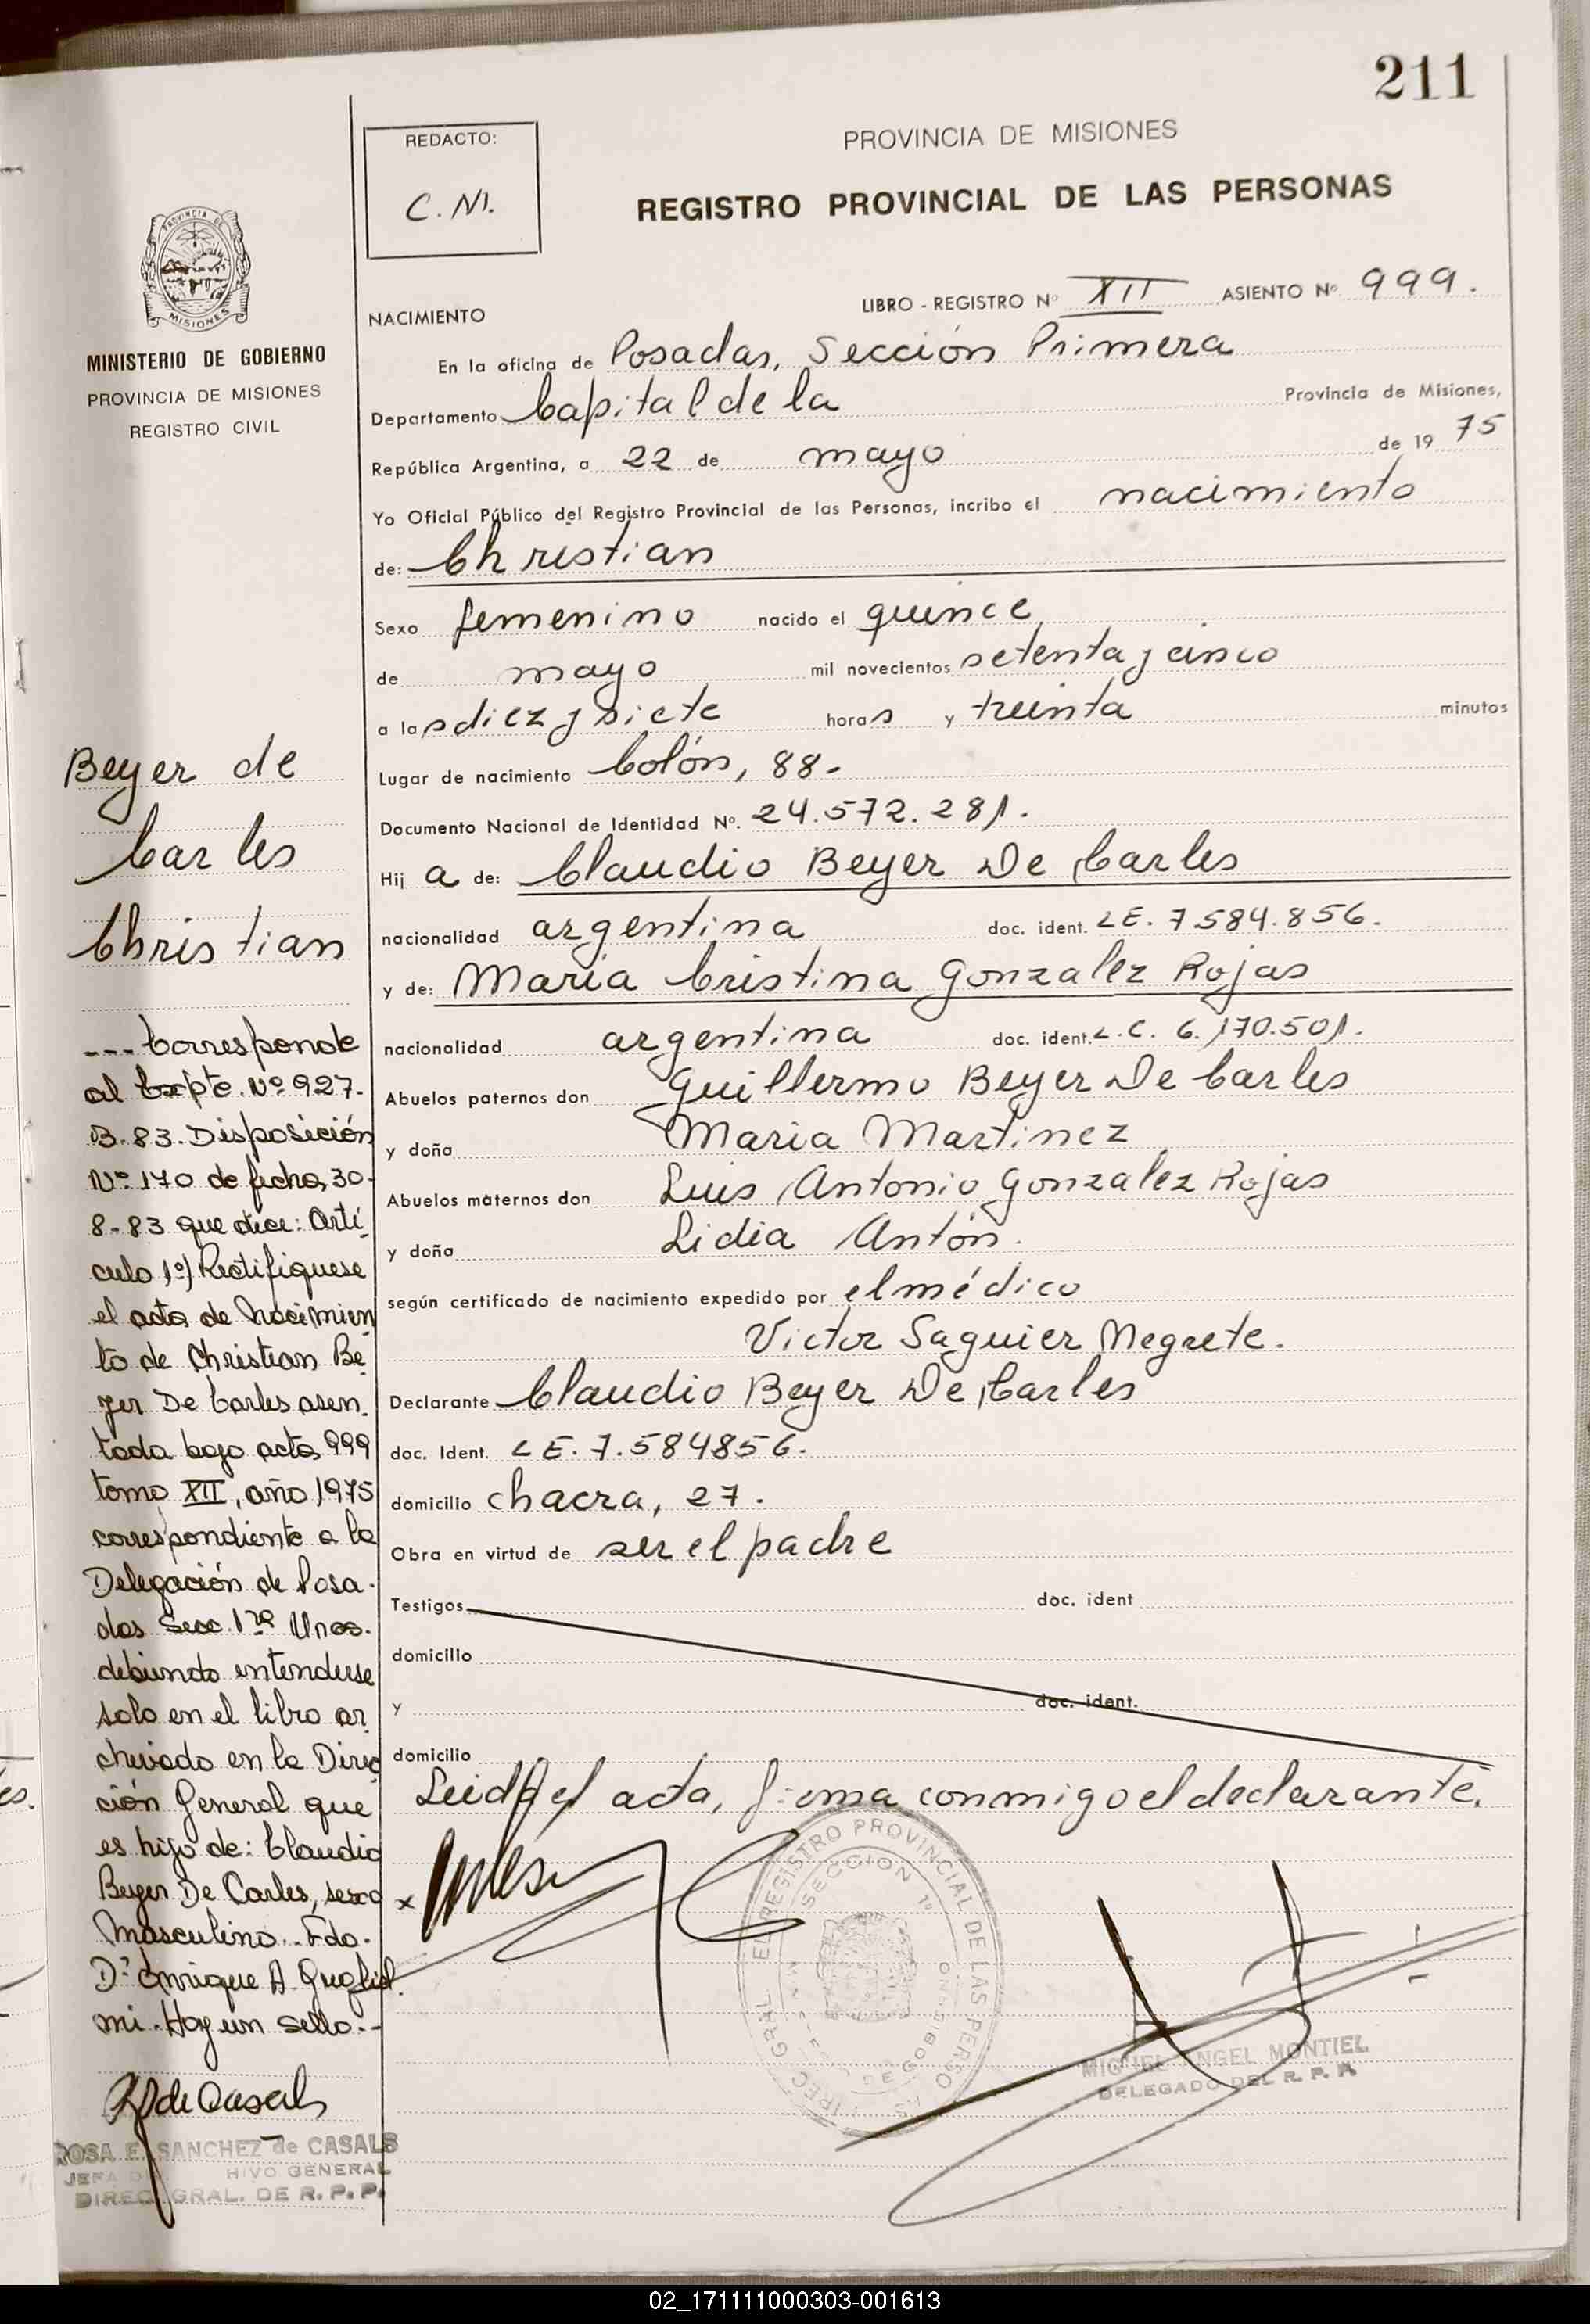 211
REDACTO:
C.N.
PROVINCIA DE MISIONES
REGISTRO PROVINCIAL DE LAS PERSONAS
MISIONES
MINISTERIO DE GOBIERNO
PROVINCIA DE MISIONES
REGISTRO CIVIL
LIBRO - REGISTRO Nº XII ASIENTO Nº 999.
NACIMIENTO
En la oficina de Posadas, Sección Primera
Departamento Capital de la Provincia de Misiones,
República Argentina, a 22 de mayo de 1975
Yo Oficial Público del Registro Provincial de las Personas, incribo el nacimiento
de: Christian
Sexo femenino nacido el quince
de mayo mil novecientos setenta y cinco
a las diez y siete horas y treinta minutos
Lugar de nacimiento Colón, 88.
Documento Nacional de Identidad Nº. 24.572.281.
Hija de: Claudio Beyer De Carles
nacionalidad argentina doc. ident. LE. 7.584.856.
y de: Maria Cristina Gonzalez Rojas
nacionalidad argentina doc. ident. L.C. 6.170.501.
Abuelos paternos don Guillermo Beyer De Carles
y doña Maria Martinez
Abuelos maternos don Luis Antonio Gonzalez Rojas
y doña Lidia Antón.
según certificado de nacimiento expedido por el médico
Victor Saguier Negrete.
Declarante Claudio Beyer De Carles
doc. Ident. LE. 7.584856.
domicilio chacra, 27.
Obra en virtud de ser el padre
Testigos doc. ident
domicilio
y doc. ident.
domicilio
Leida el acta, firma conmigo el declarante.
Beyer de
Carles
Christian
--- Corresponde
al Expte. Nº 927-
B-83. Disposición
Nº 170 de fecha, 30-
8-83 que dice: Artí
culo 1º) Rectifiquese
el acta de Nacimien
to de Christian Be
yer De Carles asen
tada bajo acta 999
tomo XII, año 1975
correspondiente a la
Delegación de Posa-
das Secc. 1ra Mnes.
debiendo entenderse
solo en el libro ar
chivado en la Direc
ción General que
es hijo de: Claudio
Beyer De Carles, sexo
masculino.-Fdo.
Dr Enrique A. Gugliel
mi. Hay un sello.-
ROSA E. SANCHEZ de CASALS
JEFA HIVO GENERAL
DIREC. GRAL. DE R. P. P.
DIREC GRAL EL REGISTRO PROVINCIAL DE LAS PERSONAS
SECCION 1ª
MIGUEL ANGEL MONTIEL
DELEGADO DEL R. P. P.
02_171111000303-001613